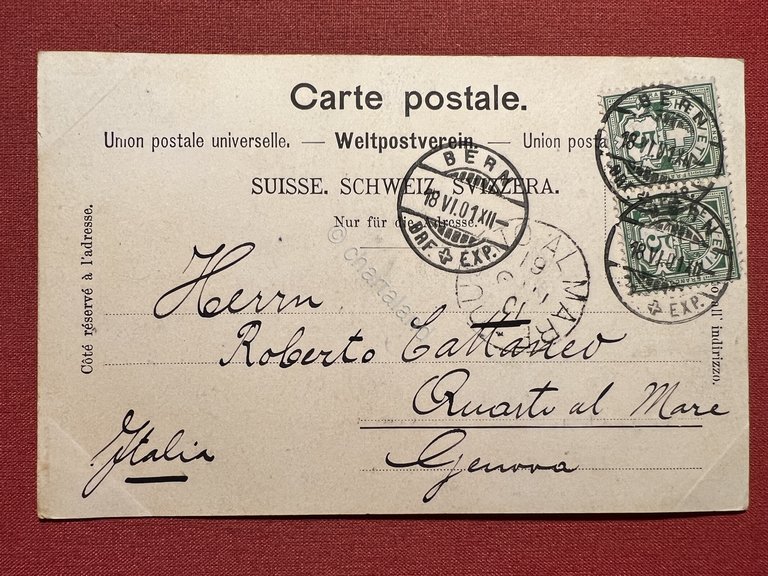 Carte postale.
Union postale universelle. — Weltpostverein. — Union posta
SUISSE. SCHWEIZ. SVIZZERA.
Nur für die Adresse.
Côté réservé à l'adresse.
all' indirizzo.
BERN
18.VI.01.XII–
BRF. EXP.
BERN
18.VI.01.XII
BRF.
BERN
18.VI.01.XII
EXP.
5
QUARTO AL MARE
19
Herrn
Roberto Cattaneo
Quarto al Mare
Genova
Italia
© chartaland